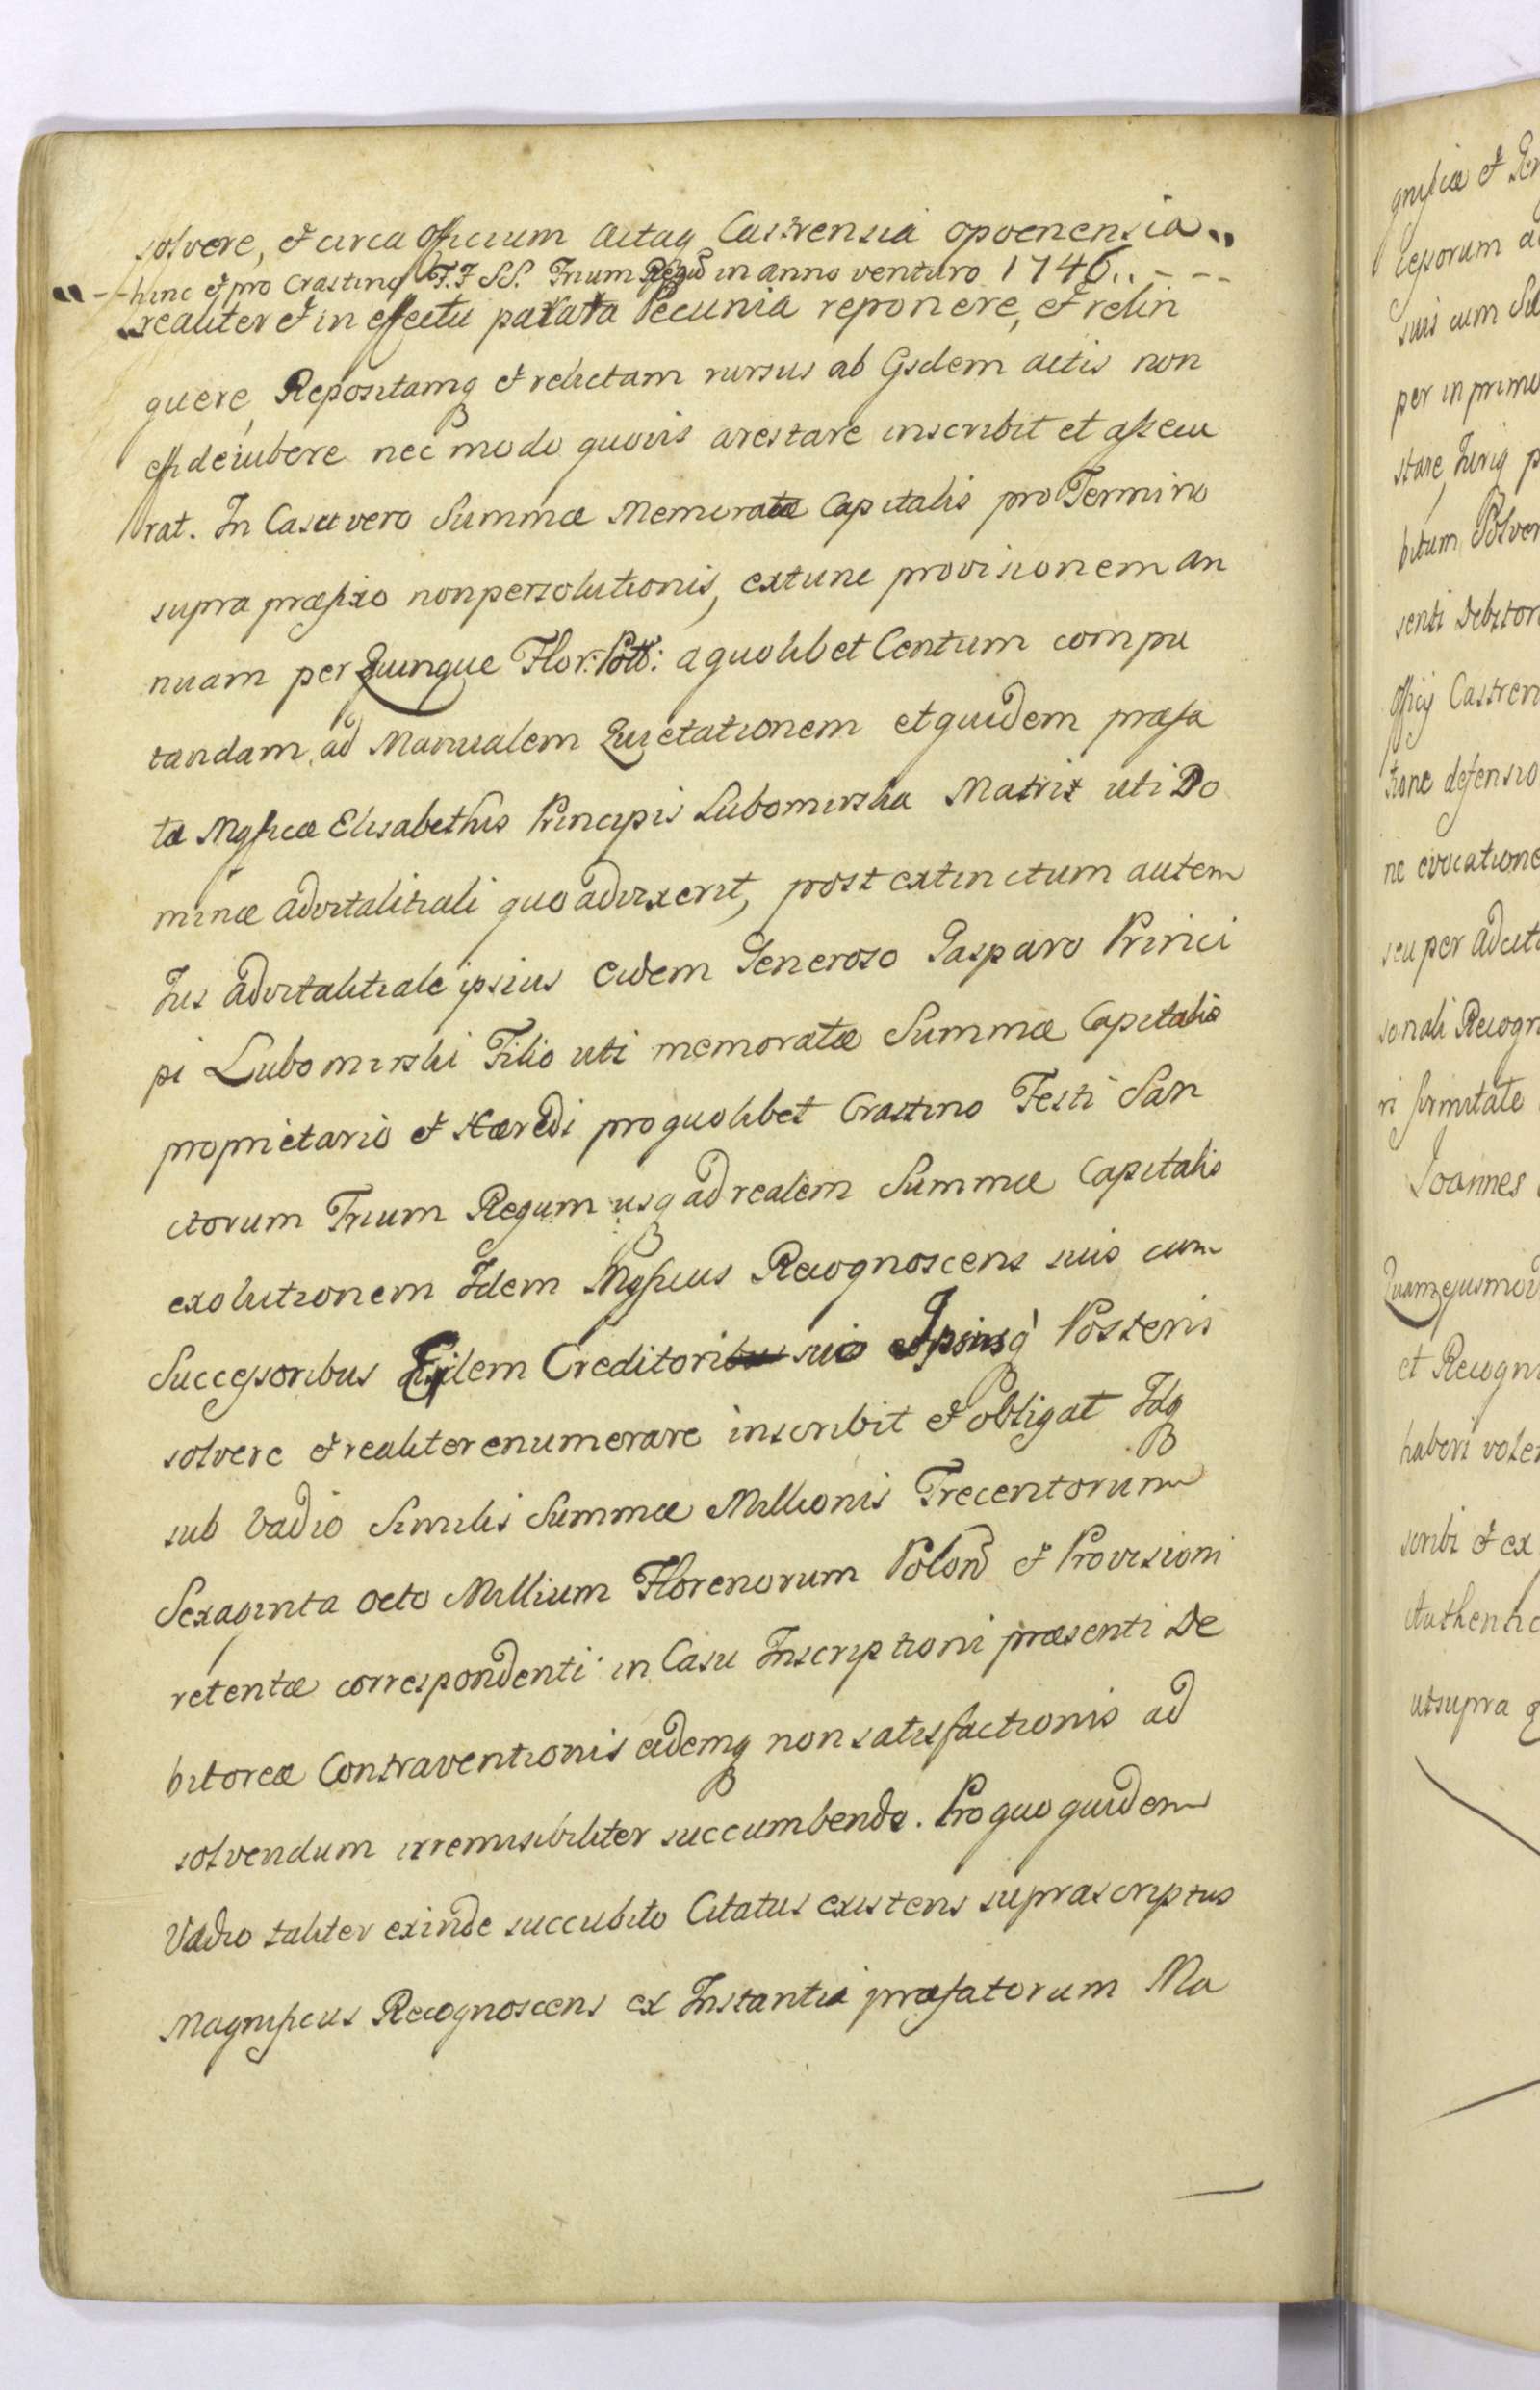 solvere, et circa Officium Actaq Castrensia opocnensia„
„--hinc et pro Crastino F.F SS. Trium Regū in anno venturo 1746..---
„realiter et in effectu parata Pecunia reponere, et relin
quere, Repositamq et relictam rursus ab Ijsdem actis non
effideiubere nec modo quovis arestare inscribit et assecu
rat. In Casu vero Summæ Memoratæ Capitalis pro Termino
supra præfixo nonpersolutionis, extunc provisionem an
nuam per Quinque Flor: Poll: a quolibet Centum compu
tandam, ad Manualem Quietationem et quidem præfa
tæ Mgficæ Elisabethis Principis Lubomirska Matris uti Do
minæ advitalitiali quoadvixerit, post extinctum autem
Jus advitalitiale ipsius eidem Generoso Gasparo Princi
pi Lubomirski Filio uti memoratæ Summæ Capitalis
proprietario et Hæredi pro quolibet Crastino Festi San
ctorum Trium Regum usq ad realem Summæ Capitalis
exolutionem Idem Mgficus Recognoscens suis cum
Successoribus Eidem Creditori suo Ipsiusq Posteris
solvere et realiter enumerare inscribit et obligat Idq
sub Vadio Similis Summæ Millionis Trecentorum
Sexaginta Octo Millium Florenorum Polon et Provisioni
retentæ correspondenti in Casu Inscriptioni præsenti De
bitoreæ Contraventionis eidemq non satisfactionis ad
solvendum irremisibiliter succumbendo. Pro quo quidem
Vadio taliter exinde succubito Citatus existens suprascriptus
Magnificus Recognoscens ex Instantia præfatorum Ma
gnificæ et
cessorum
suis cum
per inprimo
stare, Juriq
bitum Solver
senti Debitor
Officij Castren
tione defensio
ne evocatione
seu per adcit
sonali Recogn
ri firmitate
Joannes
Quamejusmod
et Recogn
haberi vole
scribi et ex
Authentic
utsupra